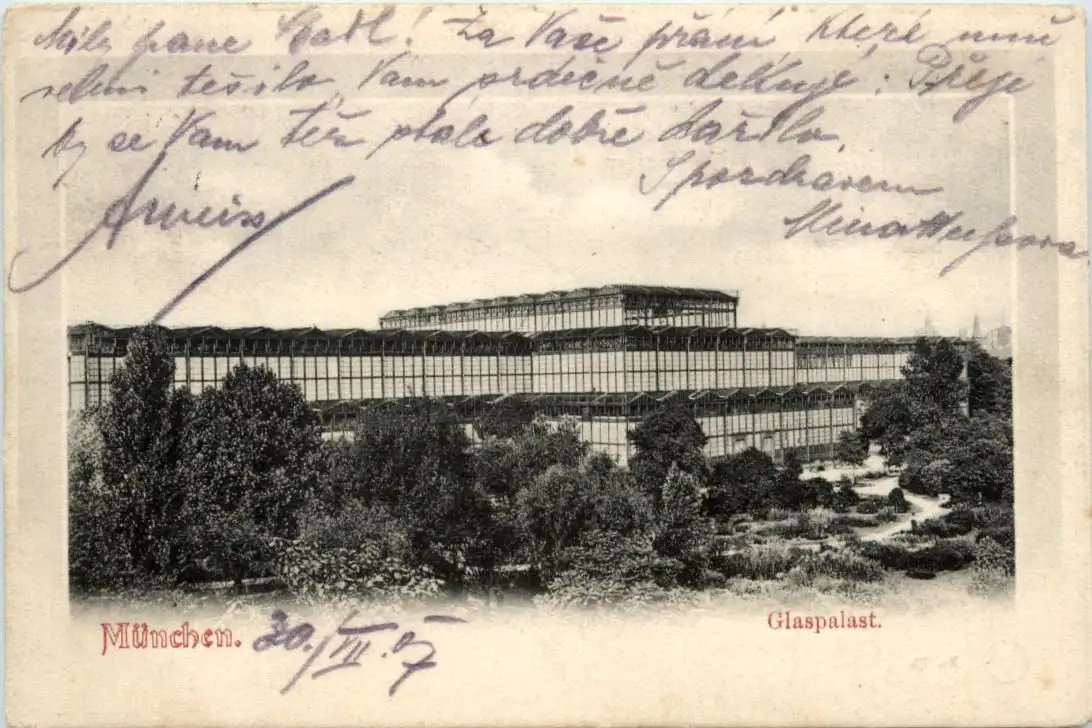 Milý pane Cadl! Za Vaše přání které mně
velmi těšilo Vám srdečně děkuje. Přeji
by se Vam též stále dobře dařilo.
S pozdravem
Mina
München. 30./VII. 07
Glaspalast.